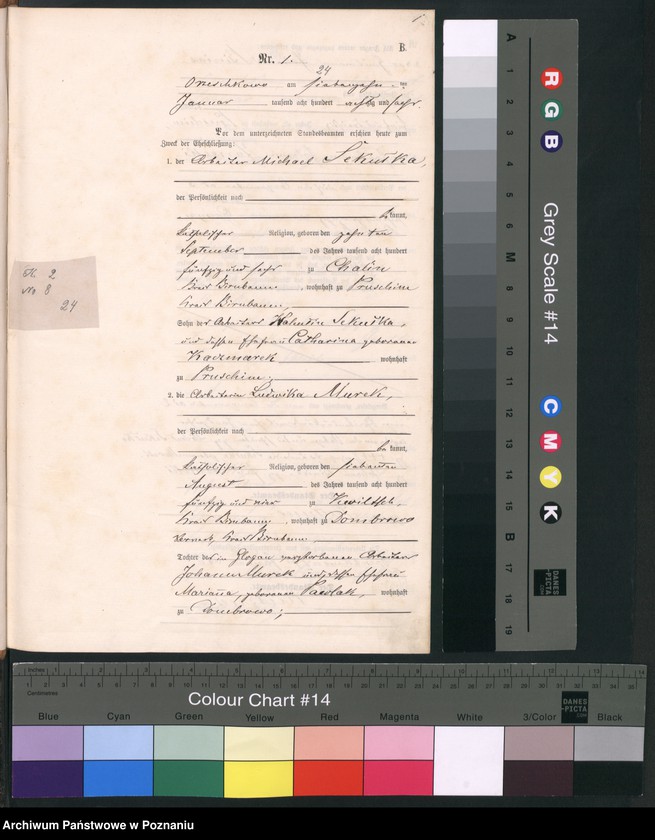 1.
B.
Nr. 1.
24
Orzeschkowo am siebenzehn ten
Januar tausend acht hundert achtzig und sechs.
Vor dem unterzeichneten Standesbeamten erschien heute zum
Zweck der Eheschließung:
1. der Arbeiter Michael Sekuśka,
der Persönlichkeit nach
be kannt,
katholischer Religion, geboren den zehn ten
September des Jahres tausend acht hundert
fünfzig und sechs zu Chalin
Kreis Birnbaum, wohnhaft zu Pruschim
Kreis Birnbaum,
Sohn des Arbeiters Valentin Sekuśka,
und dessen Ehefrau Catharina geborenen
Kaczmarek wohnhaft
zu Pruschim;
2. die Arbeiterin Ludwika Murek,
der Persönlichkeit nach
be kannt,
katholischer Religion, geboren den siebenten
August des Jahres tausend acht hundert
fünfzig und vier zu Kwiltsch,
Kreis Birnbaum, wohnhaft zu Dombrowo
Kreis Birnbaum
Tochter des in Glogau verstorbenen Arbeiters
Johann Murek und dessen Ehefrau
Marianna, geborenen Pawlak, wohnhaft
zu Dombrowo;
K. 2
No. 8
24
A 1 2 3 4 5 6 M 8 9 10 11 12 13 14 15 B 17 18 19
R G B
Grey Scale #14
C M Y K
DANES-PICTA.COM
Inches 1 2 3 4 5 6 7 8 9 10 11 12 13 14
Centimetres
Colour Chart #14
DANES-PICTA.COM
Blue Cyan Green Yellow Red Magenta White 3/Color Black
Archiwum Państwowe w Poznaniu